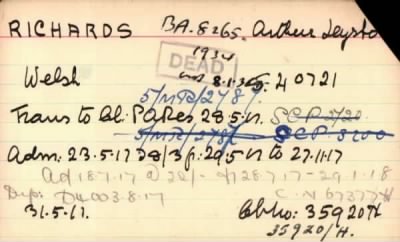 RICHARDS BA.8265. Arthur Leysho
1934
DEAD
Welsh 8.1.36. 40721
5/MR/278/.
Trans to Cl. P.Q Res 28.5.17. SCP 2/20
5/MR/278/ SCP 3200
Adm: 23.5.17 28/3 f: 29.5.17 to 27.11.17
28.7.17 - 29.1.18
Dep: D4003.8.17 C.N 67377H
31.5.17. Cl. No: 35920H
35920/H.